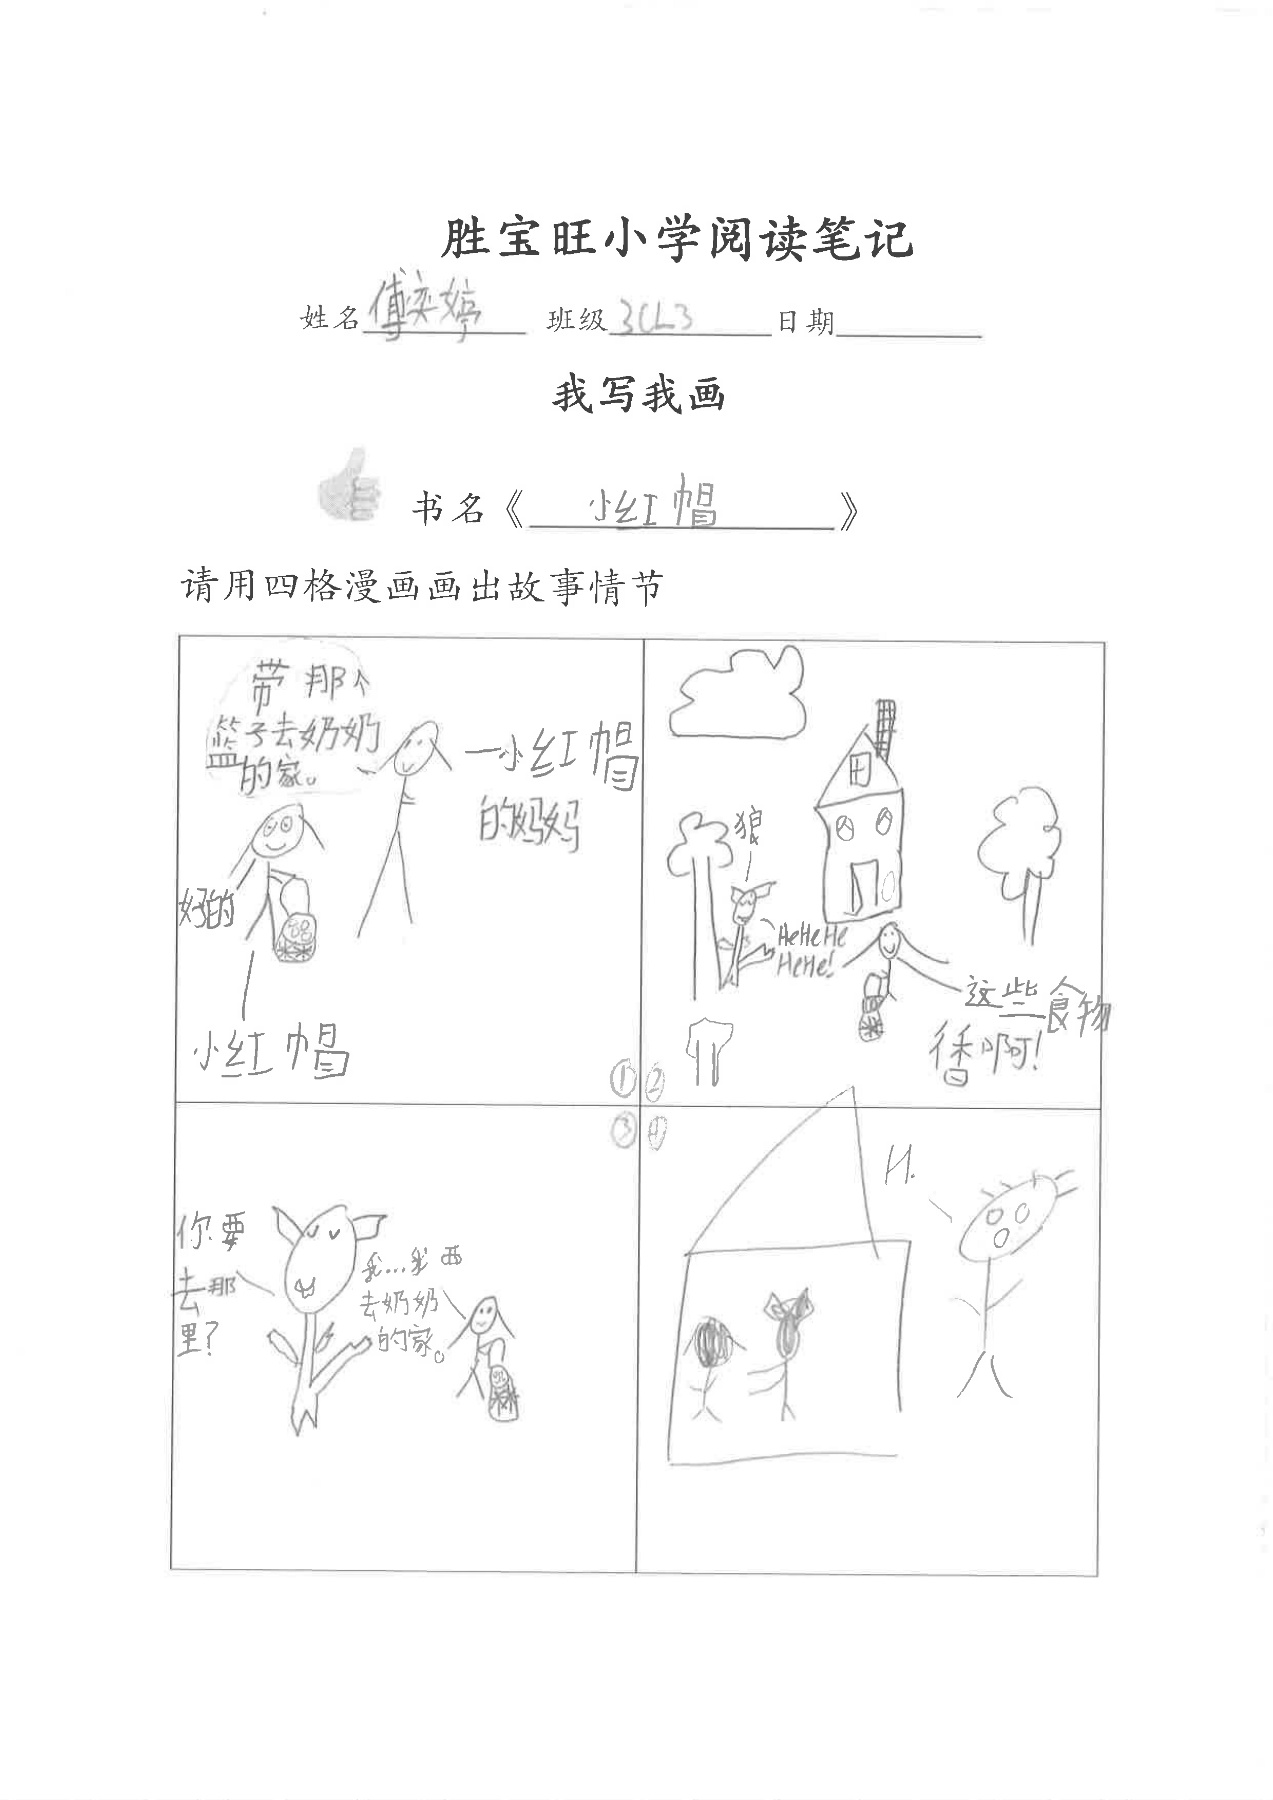 胜宝旺小学阅读笔记
姓名 傅奕婷 班级 3CL3 日期
我写我画
书名《 小红帽 》
请用四格漫画画出故事情节
带那个
篮子去奶奶
的家。
一小红帽
的妈妈
好的
小红帽
①
狼
HeHeHe
HeHe!
这些食物
香啊!
②
你要
去那
里?
我...我要
去奶奶
的家。
③
④